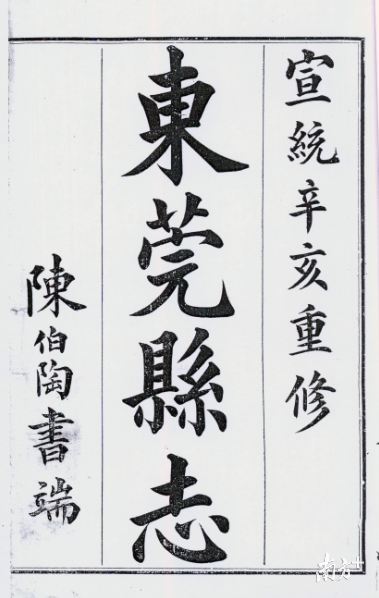 宣統辛亥重修
東莞縣志
陳伯陶書端
南方+